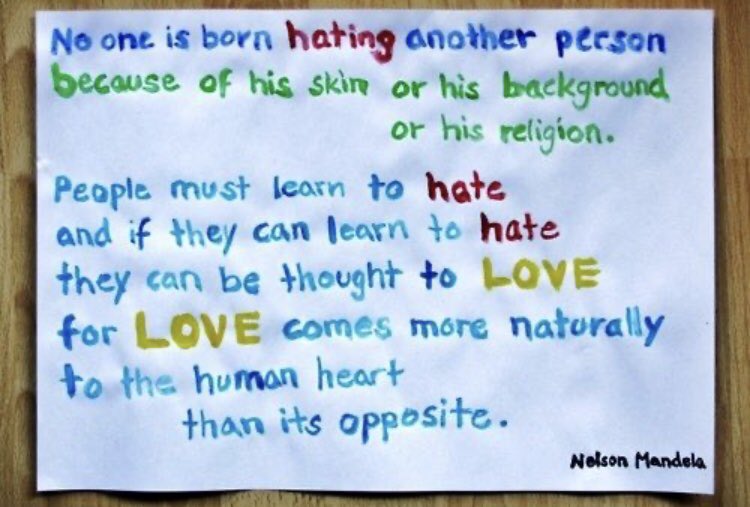 No one is born hating another person
because of his skin or his background
or his religion.
People must learn to hate
and if they can learn to hate
they can be thought to LOVE
for LOVE comes more naturally
to the human heart
than its opposite.
Nelson Mandela